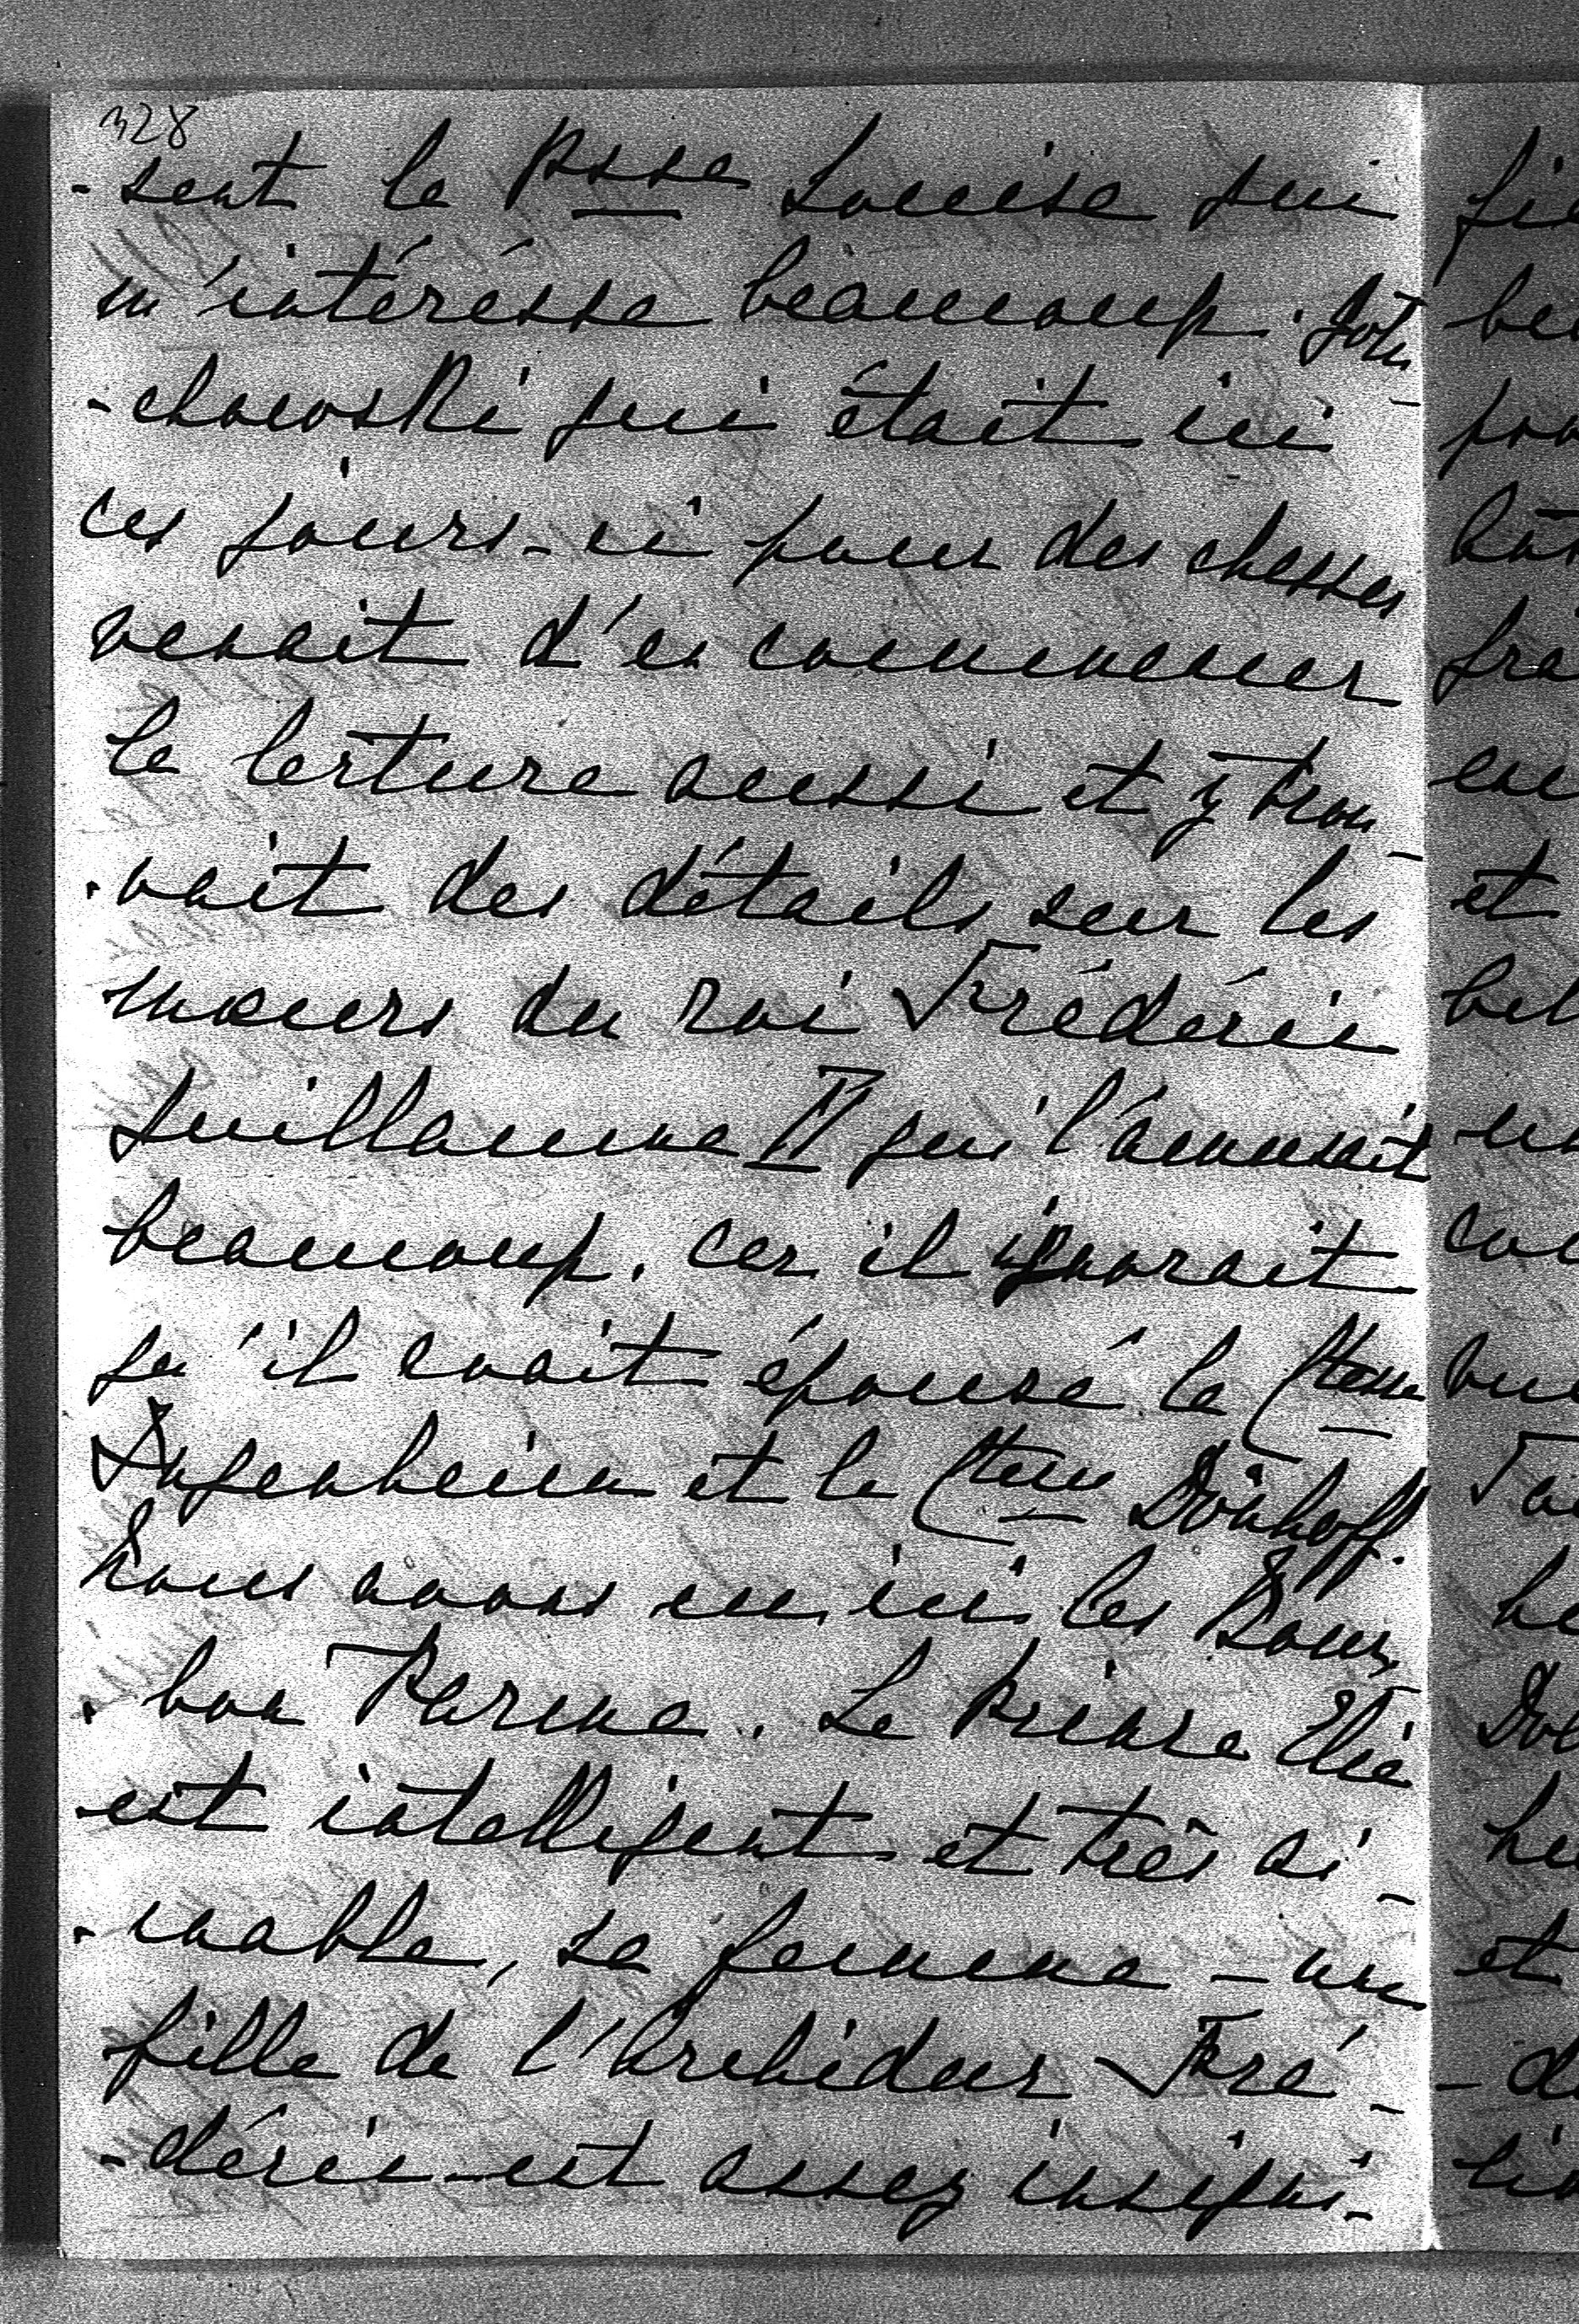 328
-sent la Psse Louise qui
m'intéresse beaucoup. Golu-
-chowski qui était ici
ces jours-ci pour des chasses
venait d'en commencer
la lecture aussi et y trou-
-vait des détails sur les
mœurs du roi Frédéric
Guillaume II qui l'amusait
beaucoup, car il ignorait
qu'il avait épousé la Ctesse
Ingenheim et la Ctesse Dönhoff.
Nous avons eu ici les Bour-
-bon Parme. Le Prince Elie
est intelligent et très ai-
-mable, sa femme - une
fille de l'Archiduc Fré-
-déric - est assez insigni-